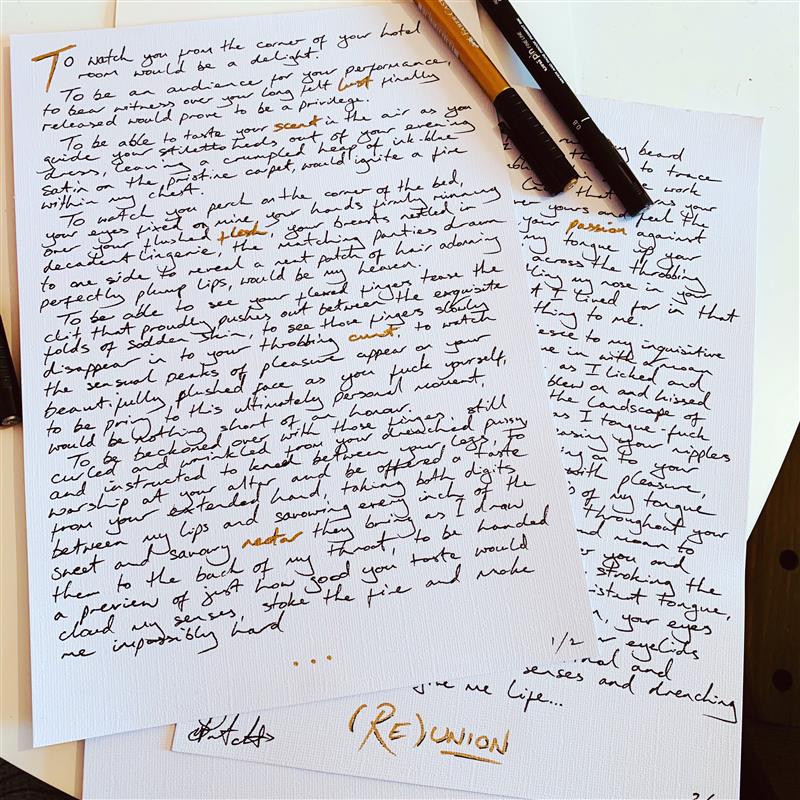 To watch you from the corner of your hotel
room would be a delight.
To be an audience for your performance,
to bear witness over your long felt lust finally
released would prove to be a privilege.
To be able to taste your scent in the air as you
guide your stiletto heels out of your evening
dress, leaving a crumpled heap of ink-blue
satin on the pristine carpet, would ignite a fire
within my chest.
To watch you perch on the corner of the bed,
your eyes fixed on mine, your hands firmly running
over your flushed flesh, your breasts nestled in
decadent lingerie, the matching panties drawn
to one side to reveal a neat patch of hair adorning
perfectly plump lips, would be my heaven.
To be able to see your flexed fingers tease the
clit that proudly pushes out between the exquisite
folds of sodden skin, to see those fingers slowly
disappear in to your throbbing cunt, to watch
the sensual peaks of pleasure appear on your
beautifully plushed face as you fuck yourself,
to be privy to this ultimately personal moment,
would be nothing short of an honour.
To be beckoned over with those fingers, still
curled and wrinkled from your drenched pussy
and instructed to kneel between your legs, to
worship at your alter and be offered a taste
from your extended hand, taking both digits
between my lips and savouring every inch of the
sweet and savoury nectar they bring as I draw
them to the back of my throat, to be handed
a preview of just how good you taste would
cloud my senses, stoke the fire and make
me impossibly hard
...
1/2
my beard
to trace
work
that
yours and feel the
your passion against
my tongue if your
across the throbbing
my nose in your
I lived for in that
thing to me.
to my inquisitive
me in with a moan
as I licked and
blew on and kissed
the landscape of
as I tongue-fuck
your nipples
on to your
with pleasure,
of my tongue
throughout your
and moan to
you and
stroking the
tongue,
your eyes
eyelids
and
senses and drenching
give me life...
(RE)UNION